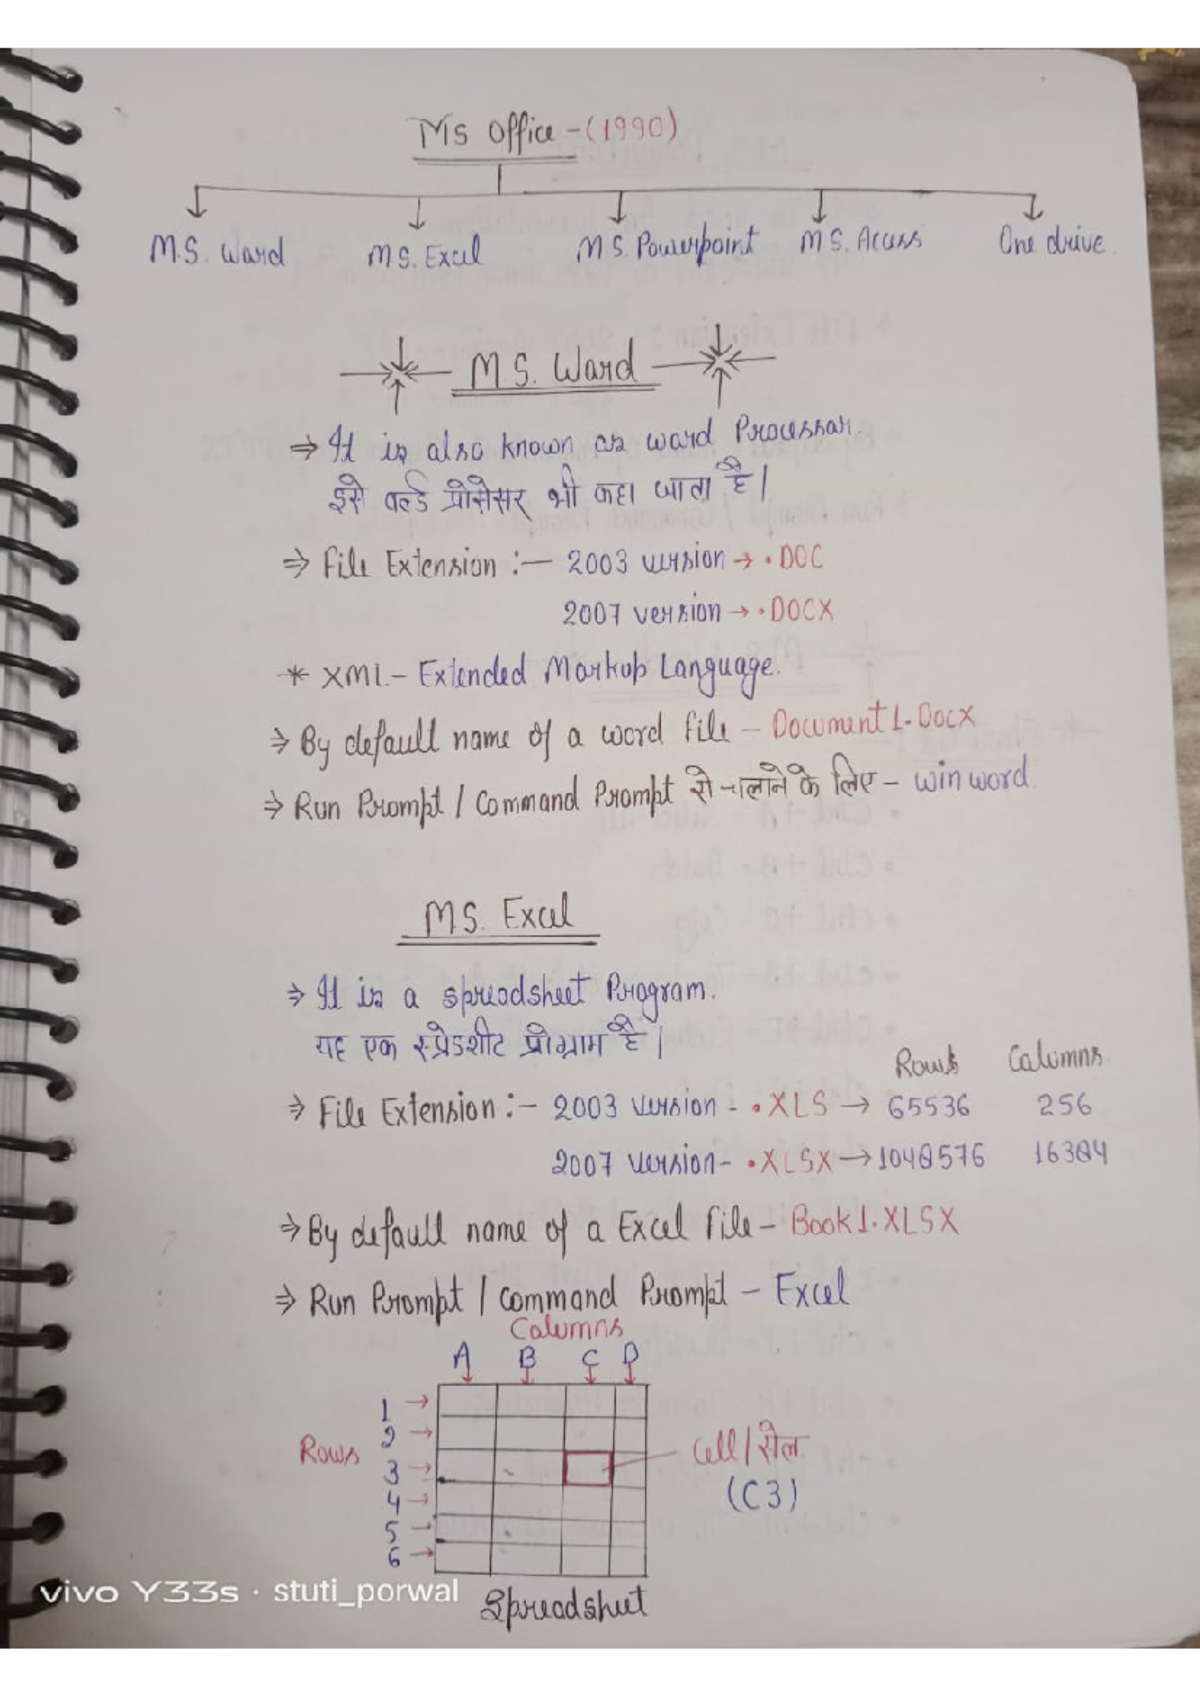 MS Office - (1990)
M.S. Word MS. Excel M.S. Powerpoint M S. Access One drive.
M.S. Word
⇒ It is also known as word Processor.
इसे वर्ल्ड प्रोसेसर भी कहा जाता है।
⇒ File Extension :- 2003 version → .DOC
2007 version → .DOCX
* XML - Extended Markup Language.
⇒ By default name of a word file - Document1.Docx
⇒ Run Prompt / Command Prompt से चलाने के लिए - winword
MS. Excel
⇒ It is a spreadsheet Program.
यह एक स्प्रेडशीट प्रोग्राम है।
Rows Columns
⇒ File Extension :- 2003 version - .XLS → 65536 256
2007 version - .XLSX → 1048576 16384
⇒ By default name of a Excel file - Book1.XLSX
⇒ Run Prompt / Command Prompt - Excel
Columns
A B C D
1
2
Rows 3 Cell/सेल
4 (C3)
5
6
vivo Y33s · stuti_porwal
Spreadsheet